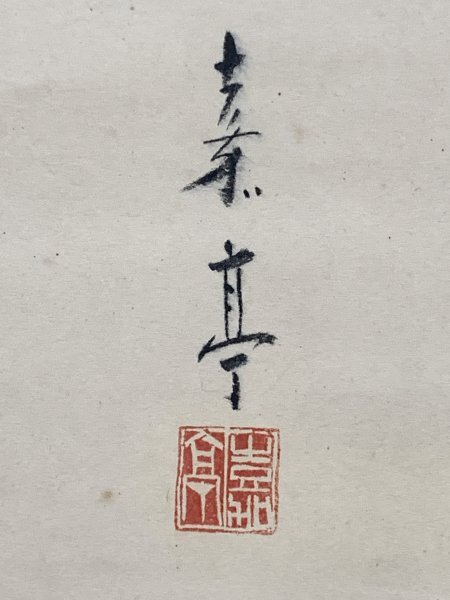 嘉亭
嘉
亭